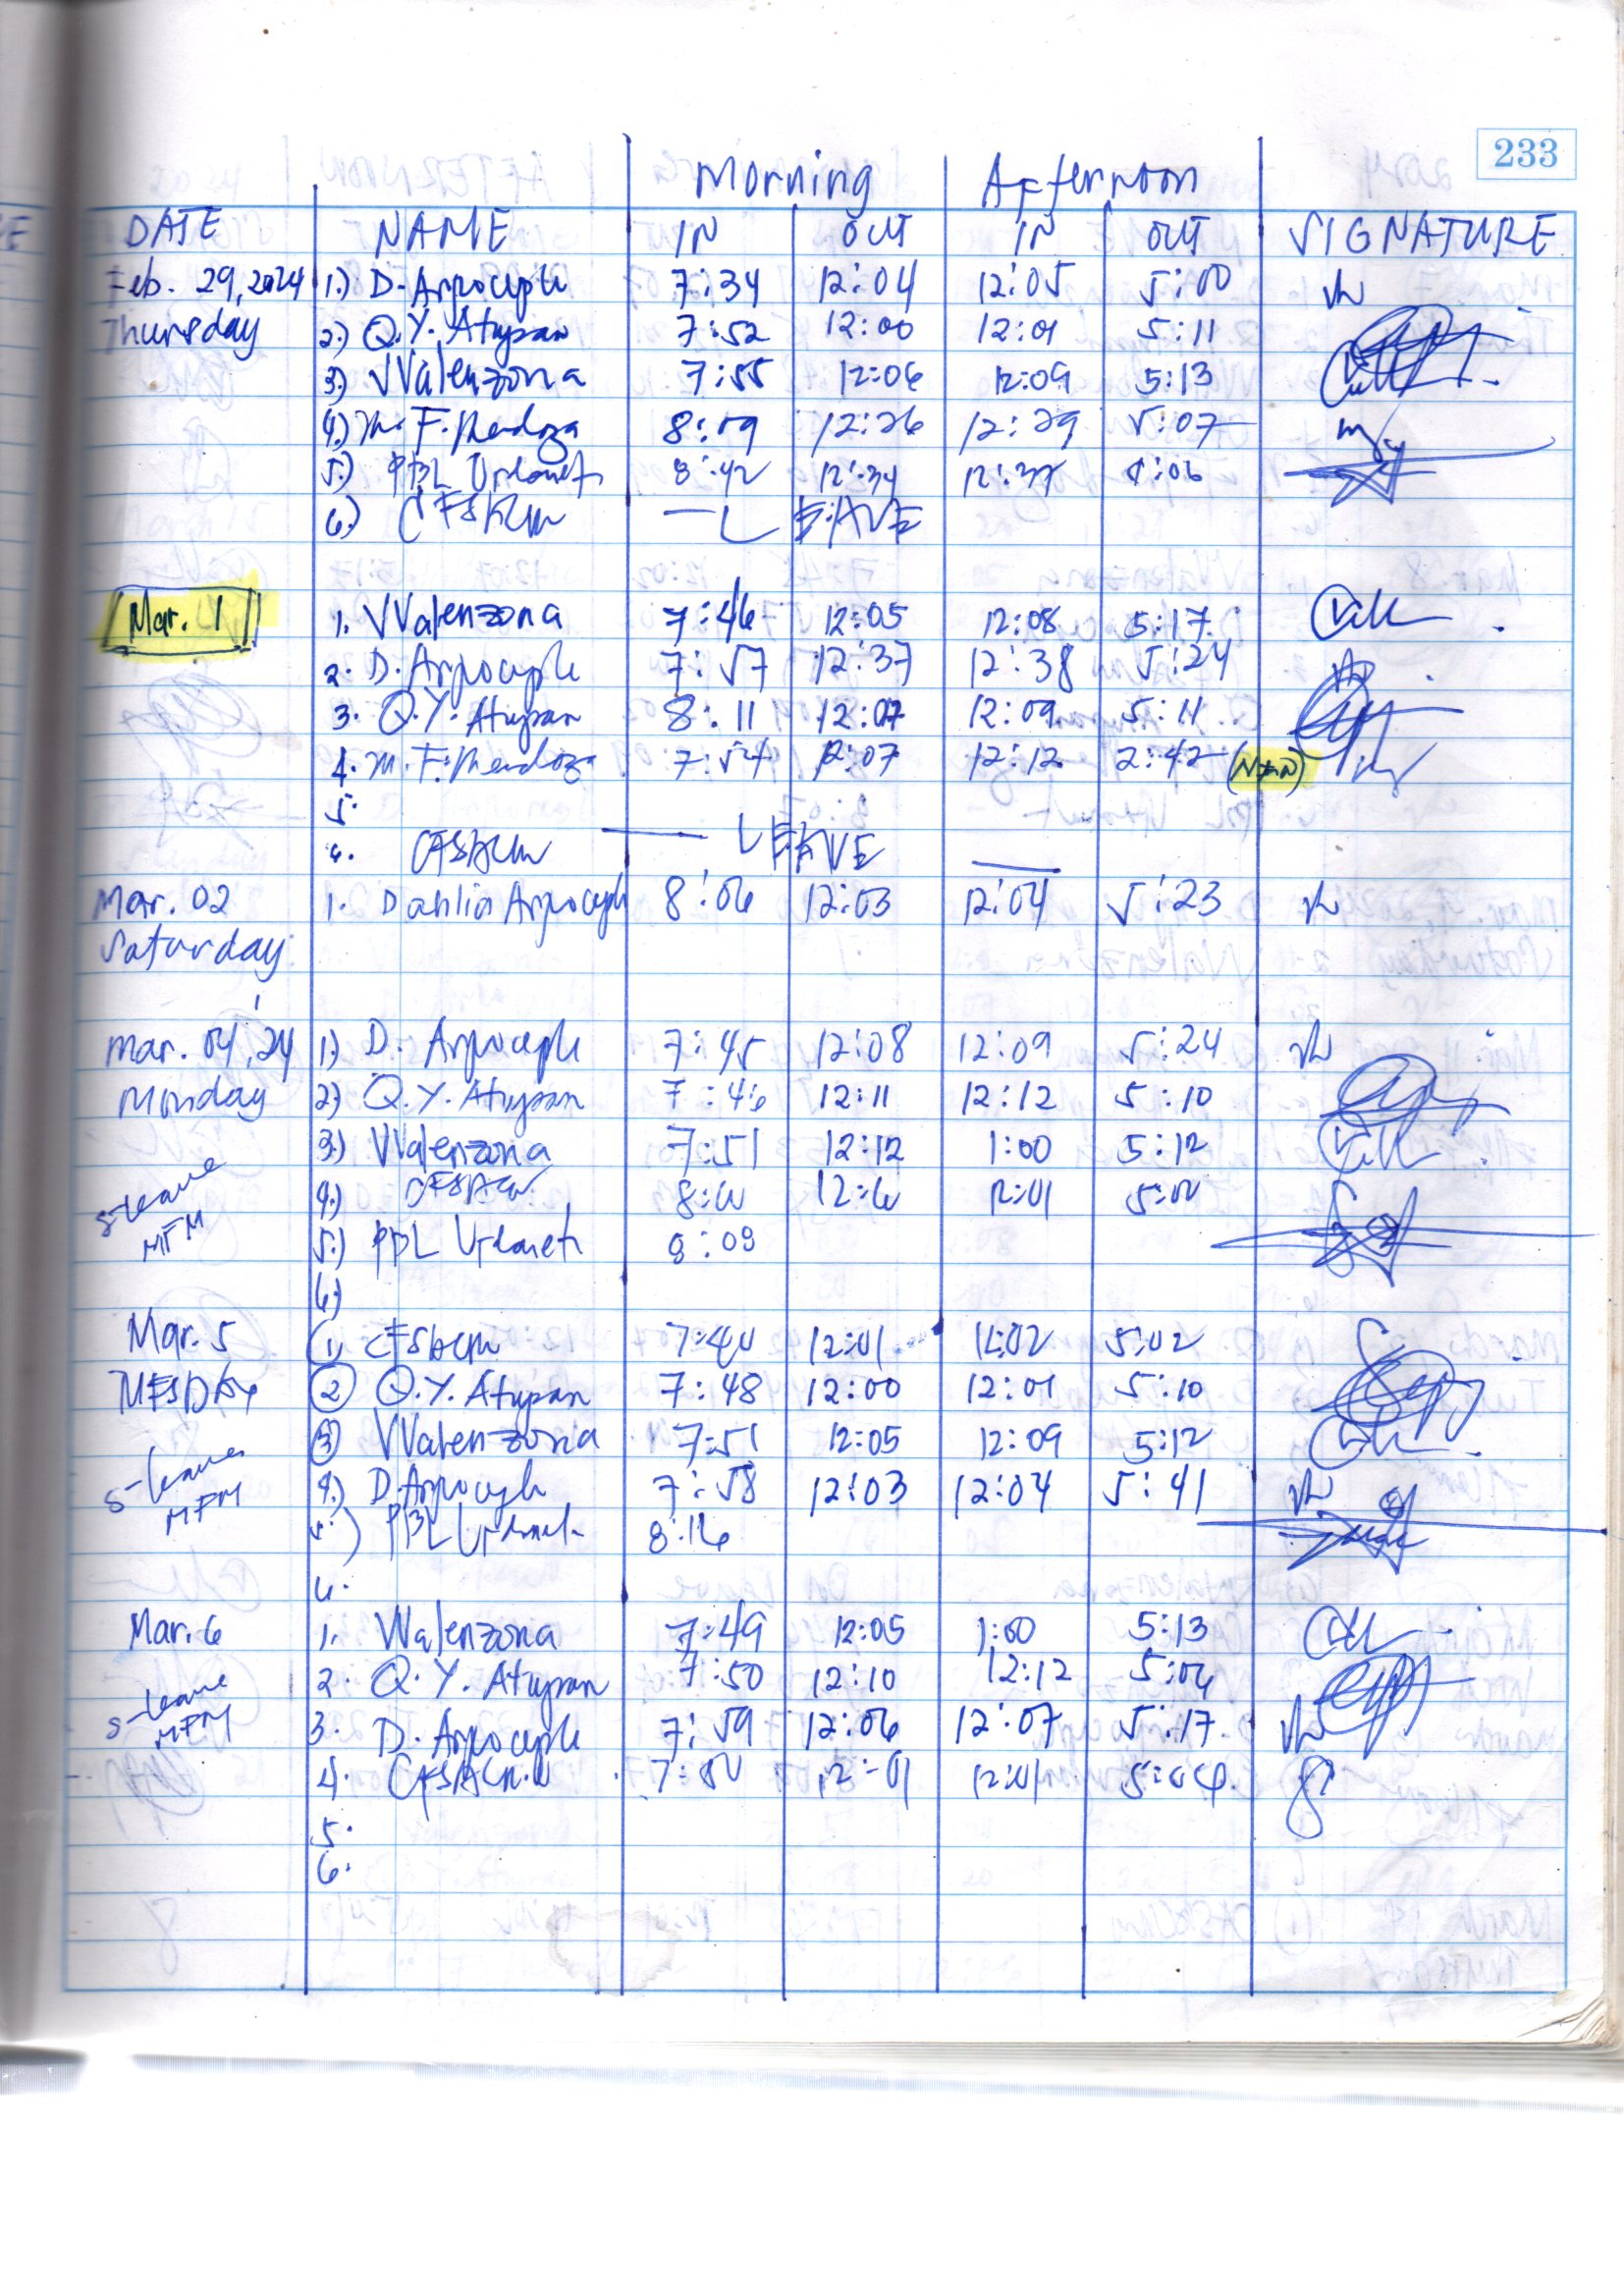 233
Morning Afternoon
DATE NAME IN OUT IN OUT SIGNATURE
Feb. 29, 2024 1.) D. Arpoceple 7:34 12:04 12:05 5:00
Thursday 2.) Q.Y. Atupan 7:52 12:00 12:01 5:11
3.) VValenzona 7:55 12:06 12:09 5:13
4.) M. F. Mendoza 8:09 12:26 12:29 5:07
5.) PBL 8:42 12:34 12:37 5:06
6.) LEAVE
Mar. 1 1. VValenzona 7:46 12:05 12:08 5:17
2. D. Arpoceple 7:57 12:37 12:38 5:24
3. Q.Y. Atupan 8:11 12:07 12:09 5:11
4. M. F. Mendoza 7:54 12:07 12:12 2:42
5.
6. LEAVE
Mar. 02 1. Dahlia Arpoceple 8:06 12:03 12:04 5:23
Saturday
Mar. 04, 24 1.) D. Arpoceple 7:45 12:08 12:09 5:24
Monday 2.) Q.Y. Atupan 7:46 12:11 12:12 5:10
3.) VValenzona 7:51 12:12 1:00 5:12
s-leave 4.) 12:01
MFM 5.) PBL 8:09
6.)
Mar. 5 1. 7:40 12:01 12:02 5:02
2 Q.Y. Atupan 7:48 12:00 12:01 5:10
3 VValenzona 7:51 12:05 12:09 5:12
s-leave 4.) D. Arpoceple 7:58 12:03 12:04 5:41
MFM 5.) PBL 8:16
6.
Mar. 6 1. VValenzona 7:49 12:05 1:00 5:13
s-leave 2. Q.Y. Atupan 7:50 12:10 12:12 5:04
MFM 3. D. Arpoceple 7:59 12:06 12:07 5:17
4. 7:50 12:01 12:01 5:04
5.
6.